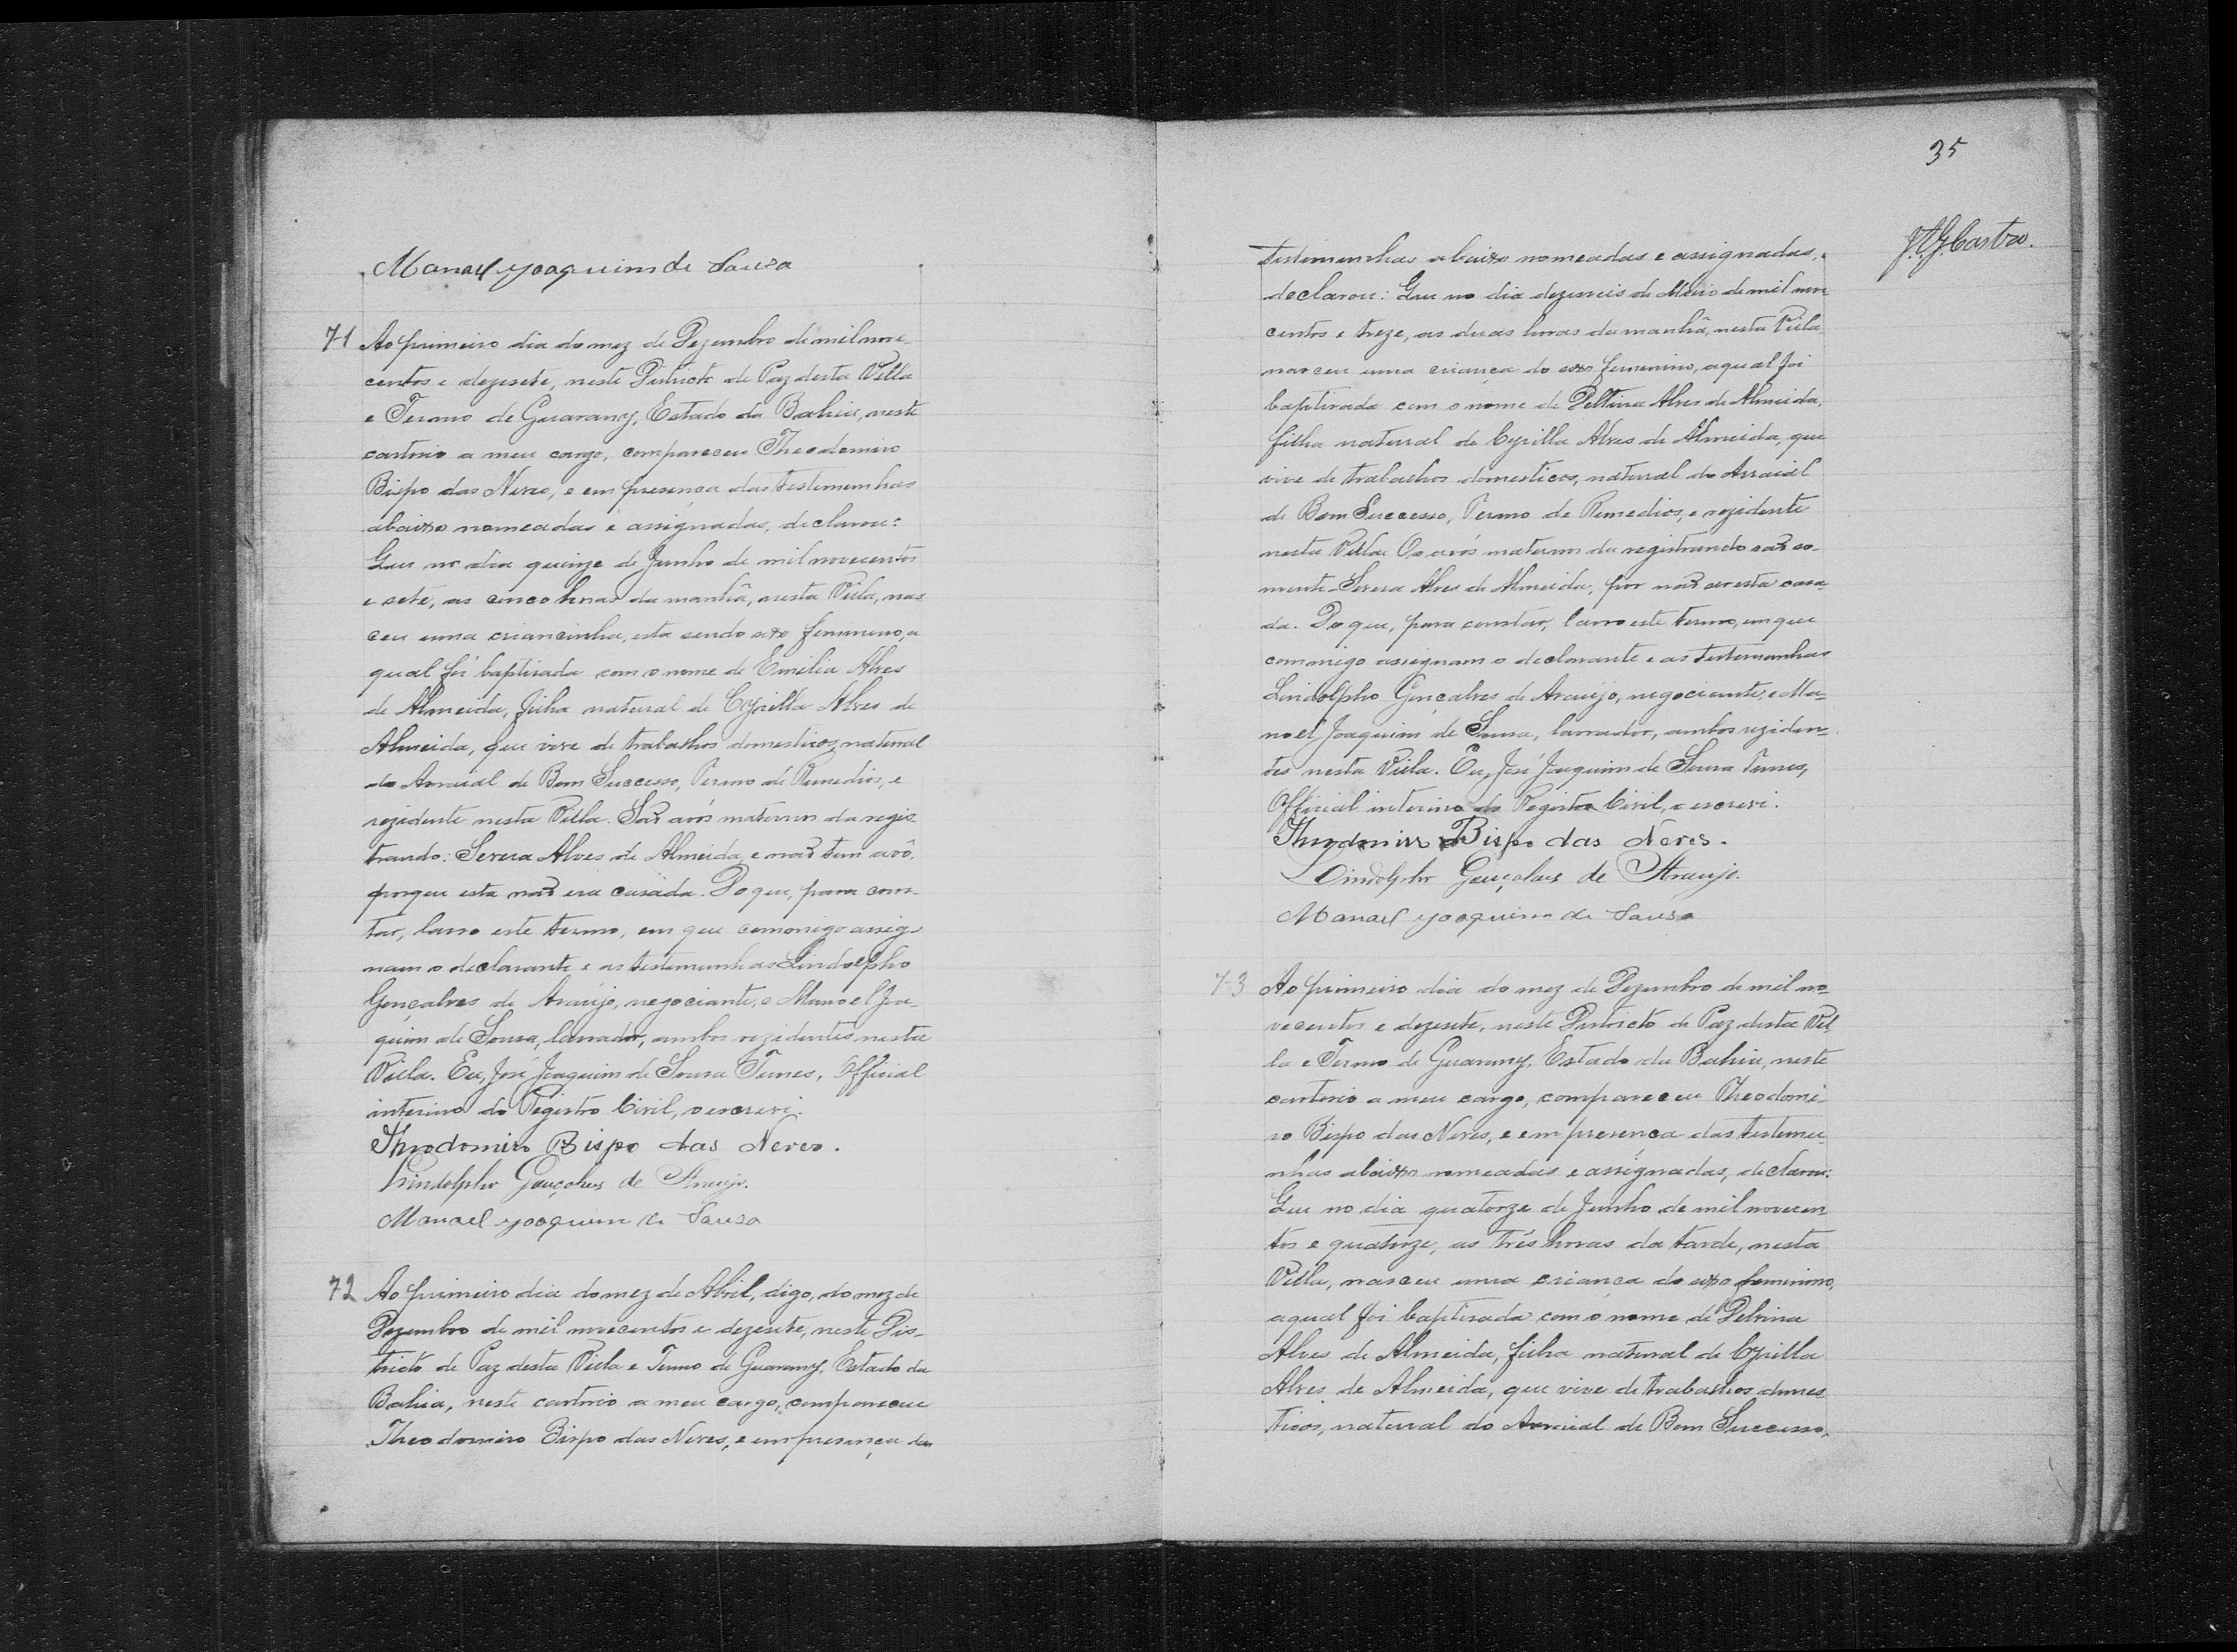 Manoel Joaquim de Sousa
71 Ao primeiro dia do mez de Dezembro de mil nove-
centos e dezesete, neste Districto de Paz desta Villa
e Termo de Guarany, Estado da Bahia, neste
cartorio a meu cargo, compareceu Theodomiro
Bispo das Neves, e em presença das testemunhas
abaixo nomeadas e assignadas, declarou:
Que no dia quinze de Junho de mil novecentos
e sete, as cinco horas da manhã, nesta Villa, nas
ceu uma criancinha, esta sendo sexo femenino, a
qual foi baptisada com o nome de Emilia Alves
de Almeida, filha natural de Cyrilla Alves de
Almeida, que vive de trabalhos domesticos, natural
do Arraial de Bom Successo, Termo de Remedios, e
rezidente nesta Villa. São avós maternos da regis-
trando: Alves de Almeida, e não tem avô,
porque esta não era casada. Do que, para cons-
tar, lavro este termo, em que commigo assig-
nam o declarante e as testemunhas Lindolpho
Gonçalves de Araujo, negociante, e Manoel Joa-
quim de Sousa, lavrador, ambos rezidentes nesta
Villa. Eu, José Joaquim de Sousa Official
interino do Registro Civil, o escrevi.
Theodomiro Bispo das Neves.
Lindolpho Gonçalves de Araujo.
Manoel Joaquim de Sousa
72 Ao primeiro dia do mez de Abril, digo, do mez de
Dezembro de mil novecentos e dezesete, neste Dis-
tricto de Paz desta Villa e Termo de Guarany, Estado da
Bahia, neste cartorio a meu cargo, compareceu
Theodomiro Bispo das Neves, e em presença das
35
J. A. G. Castro.
testemunhas abaixo nomeadas e assignadas,
declarou: Que no dia dezeseis de Maio de mil nove
centos e treze, as duas horas da manhã, nesta Villa,
nasceu uma criança do sexo femenino, a qual foi
baptisada com o nome de Alves de Almeida,
filha natural de Cyrilla Alves de Almeida, que
vive de trabalhos domesticos, natural do Arraial
de Bom Successo, Termo de Remedios, e rezidente
nesta Villa. Os avós maternos da registrando são so-
mente Alves de Almeida, por não ser esta casa-
da. Do que, para constar, lavro este termo, em que
commigo assignam o declarante e as testemunhas
Lindolpho Gonçalves de Araujo, negociante, e Ma-
noel Joaquim de Sousa, lavrador, ambos reziden-
tes nesta Villa. Eu, José Joaquim de Sousa
Official interino do Registro Civil, o escrevi.
Theodomiro Bispo das Neves.
Lindolpho Gonçalves de Araujo.
Manoel Joaquim de Sousa
73 Ao primeiro dia do mez de Dezembro de mil no-
vecentos e dezesete, neste Districto de Paz desta Vil-
la e Termo de Guarany, Estado da Bahia, neste
cartorio a meu cargo, compareceu Theodomi-
ro Bispo das Neves, e em presença das testemu-
nhas abaixo nomeadas e assignadas, declarou:
Que no dia quatorze de Junho de mil novecen-
tos e quatorze, as três horas da tarde, nesta
Villa, nasceu uma criança do sexo femenino,
a qual foi baptisada com o nome de
Alves de Almeida, filha natural de Cyrilla
Alves de Almeida, que vive de trabalhos domes
ticos, natural do Arraial de Bom Successo,